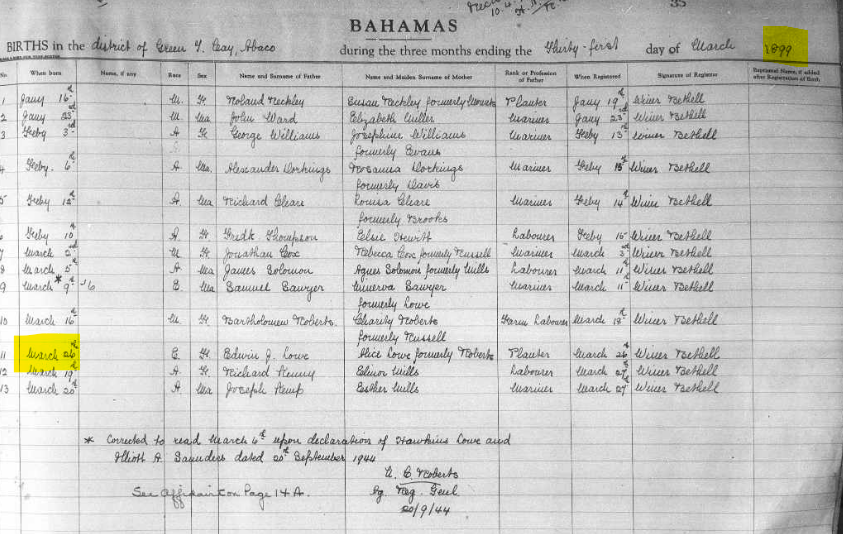 33
BAHAMAS
BIRTHS in the district of Green T. Cay, Abaco during the three months ending the Thirty-first day of March 1899
No. When born Name, if any Race Sex Name and Surname of Father Name and Maiden Surname of Mother Rank or Profession of Father When Registered Signature of Registrar Baptismal Name, if added after Registration of Birth
1 Jany 16th Planter Jany 19th Bethell
2 Jany 23rd John Ward Elizabeth Mariner Jany 23rd Bethell
3 Feby 3rd A George Williams Josephine Williams Mariner Feby 13th Bethell
formerly Evans
4 Feby. 6th A Alexander Mariner Feby Bethell
formerly Davis
5 Feby A Richard Louisa Mariner Feby 14th Bethell
formerly Brooks
6 Feby 10th A Fredk Thompson Elsie Hewitt Labourer Feby 15th Bethell
7 March 2nd Jonathan Cox Rebecca Cox formerly Russell Mariner March 3rd Bethell
8 March 5th A James Solomon Agnes Solomon formerly Mills Labourer March 11th Bethell
9 March * 9th 6 Samuel Sawyer Minerva Sawyer Mariner March 11th Bethell
formerly Lowe
10 March 16th Bartholomew Roberts. Charity Roberts Farm Labourer March 18th Bethell
formerly Russell
11 March 26th Edwin J. Lowe Alice Lowe formerly Roberts Planter March 26th Bethell
12 March 19th A Richard Elinor Mills Labourer March 27th Bethell
13 March 20th A Joseph Kemp Esther Mills Mariner March 27th Bethell
* Corrected to read March 6th upon declaration of Hawkins Lowe and
A. Saunders dated 20th September 1944
C. Roberts
See Affidavit on Page 14A. Reg. Genl
20/9/44